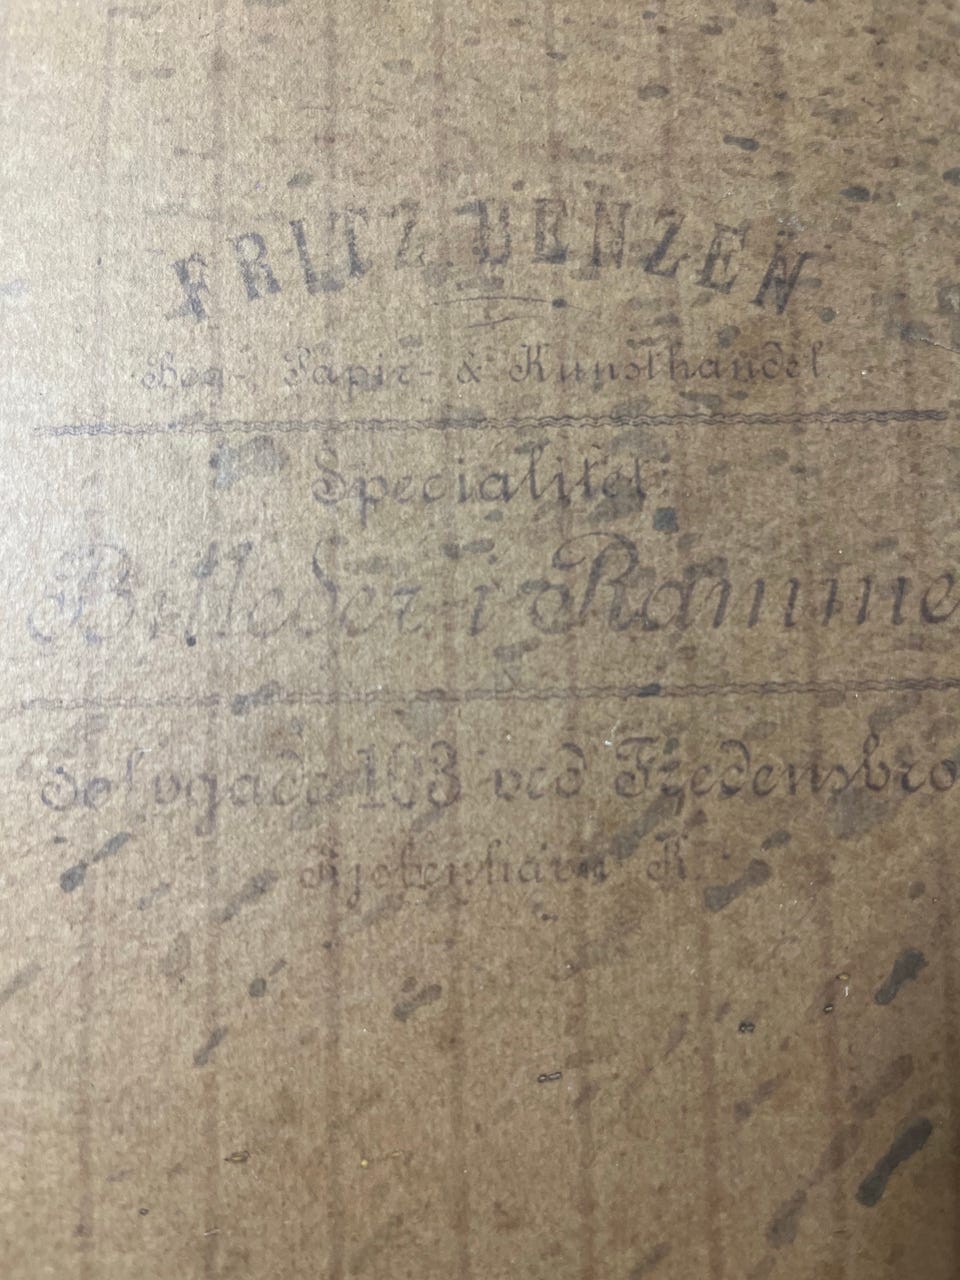 FRITZ BENZEN.
Bog-, Papir- & Kunsthandel.
Specialitet:
Billeder i Ramme
Sølvgade 103 ved Fredensbro
Kjøbenhavn K.